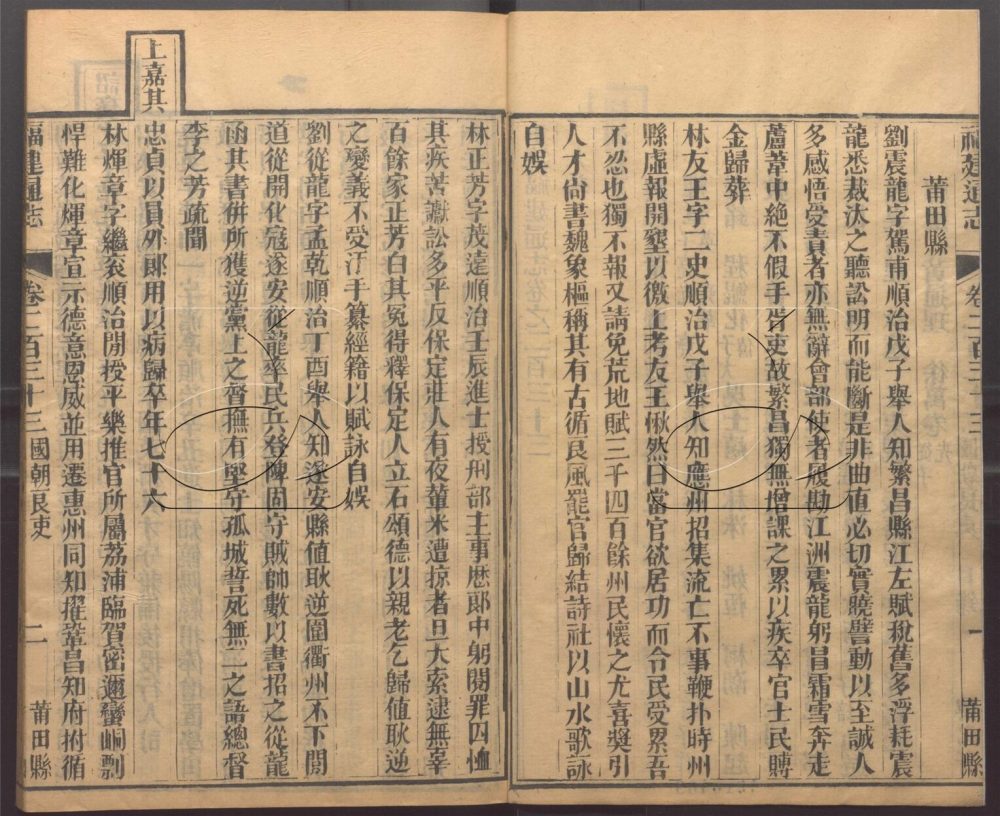 福建通志 卷二百三十三 國朝良吏 一 莆田縣
莆田縣
劉震龍字駕甫順治戊子舉人知繁昌縣江左賦稅舊多浮耗震
龍悉裁汰之聽訟明而能斷是非曲值必切實曉譬動以至誠人
多感悟受責者亦無辭會部使者履勘江洲震龍躬冒霜雪奔走
蘆葦中絶不假手胥吏故繁昌獨無增課之累以疾卒官士民賻
金歸葬
林友王字二史順治戊子舉人知應州招集流亡不事鞭扑時州
縣虛報開墾以徼上考友王愀然曰當官欲居功而令民受累吾
不忍也獨不報又請免荒地賦三千四百餘州民懷之尤喜獎引
人才尚書魏象樞稱其有古循良風罷官歸結詩社以山水歌詠
自娛
林正芳字茂遠順治壬辰進士授刑部主事歷郎中躬閱罪囚恤
其疾苦讞訟多平反保定莊人有夜輦米遭掠者旦大索逮無辜
百餘家正芳白其冤得釋保定人立石頌德以親老乞歸値耿逆
之變義不受汙手纂經籍以賦詠自娛
劉從龍字孟乾順治丁酉舉人知遂安縣値耿逆圍衢州不下間
道從開化寇遂安從龍率民兵登陴固守賊帥數以書招之從龍
函其書併所獲逆黨上之督撫有堅守孤城誓死無二之語總督
李之芳疏聞
上嘉其忠貞以員外郎用以病歸卒年七十六
林煇章字繼衮順治閒授平樂推官所屬荔浦臨賀密邇蠻峒剽
悍難化煇章宣示德意恩威並用遷惠州同知擢鞏昌知府拊循
福建通志 卷二百三十三 國朝良吏 二 莆田縣